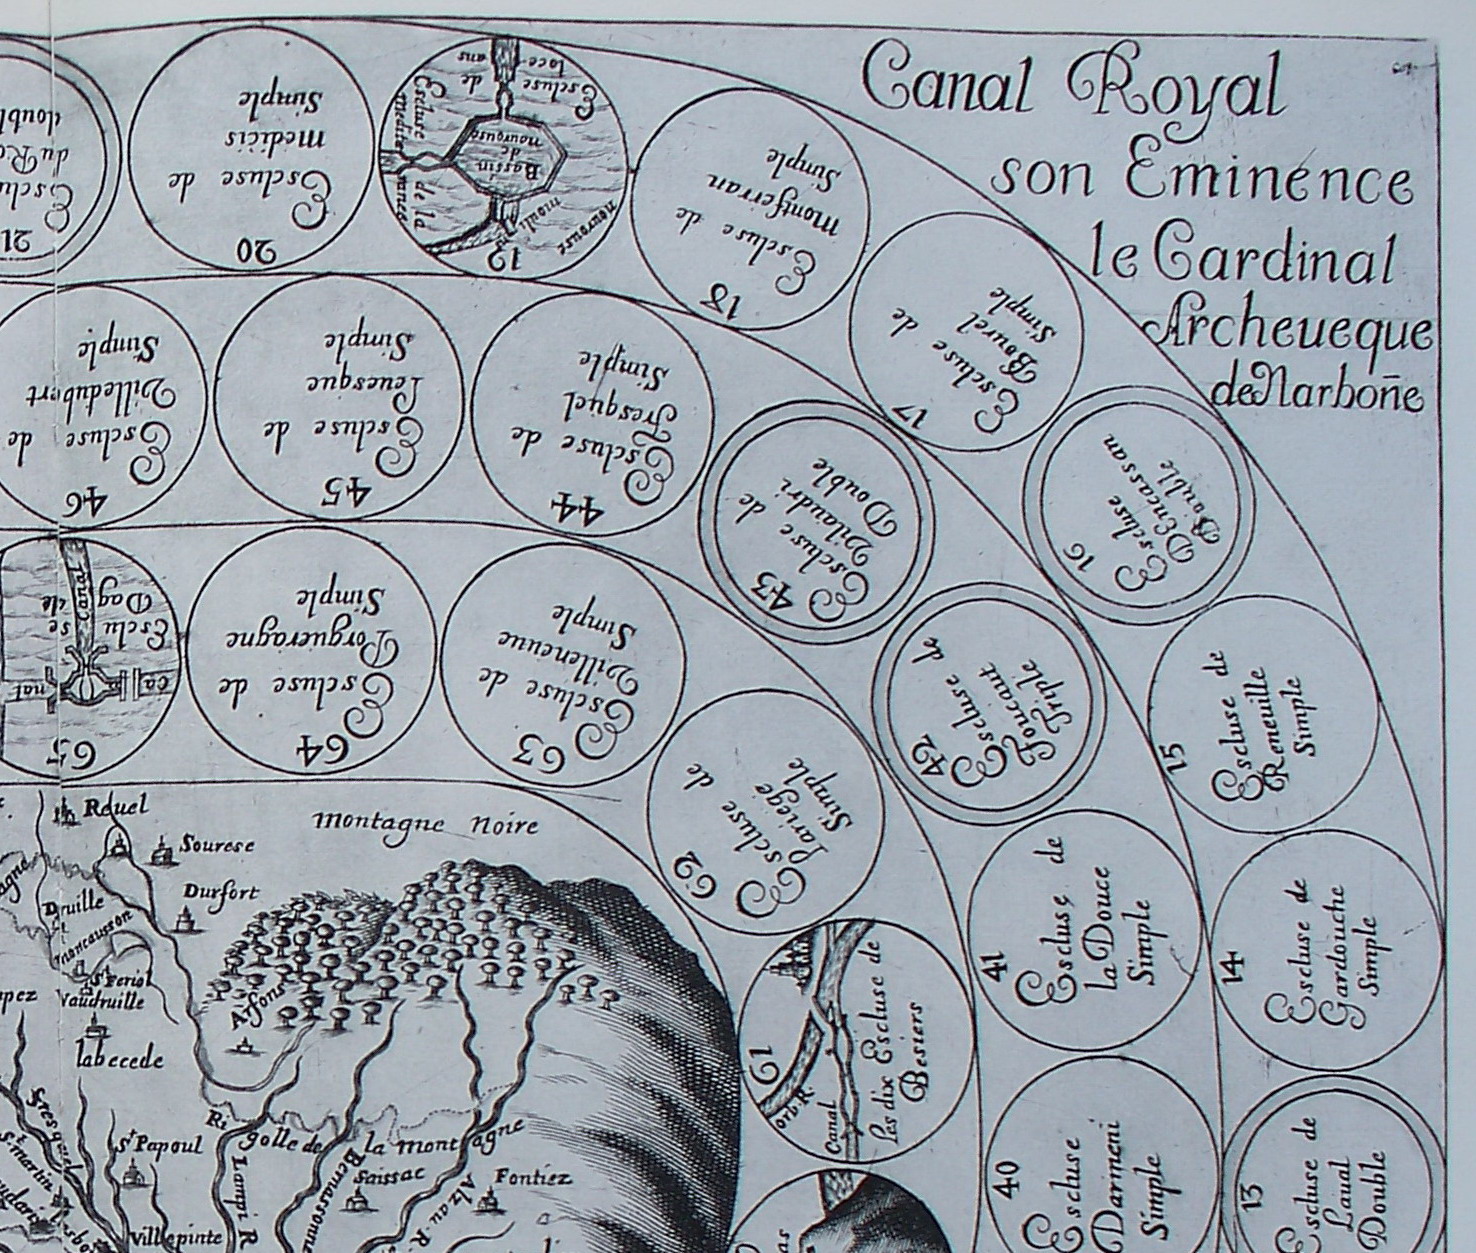 Canal Royal
son Eminence
le Cardinal
Archeueque
de Narboñe
13
Escluse de
Laual
Double
14
Escluse de
Gardouche
Simple
15
Escluse de
Reneuille
Simple
16
Escluse
DEncassan
Double
17
Escluse de
Bourel
Simple
18
Escluse de
montferran
Simple
19
nourouse
moulin
Bassin
de
nourouse
Escluse de la
mediterranes
Escluse de
loce
ans
20
Escluse de
medicis
Simple
21
Esclu
du Ro
doubl
40
Escluse
Darmeni
Simple
41
Escluse de
la Douce
Simple
42
Escluse de
Foucaut
Triple
43
Escluse de
Vilaudri
Double
44
Escluse de
Fresquel
Simple
45
Escluse de
Leuesque
Simple
46
Escluse de
Villedubert
Simple
61
Les dix Escluse de
Besiers
Canal
orb R.
62
Escluse de
Lariege
Simple
63
Escluse de
Villeneuue
Simple
64
Escluse de
Porgueragne
Simple
65
ca
nal
Esclu se
Dag de
Canal
montagne noire
Reuel
Sourese
Durfort
Druille
moncausson
St Feriol
Vaudruille
labecede
Alfons
Rigolle de la montagne
St Papoul
Saissac
Fontiez
Lampi R
Bernassonne
Alzau R.
Fresquel
St martin
Villepinte